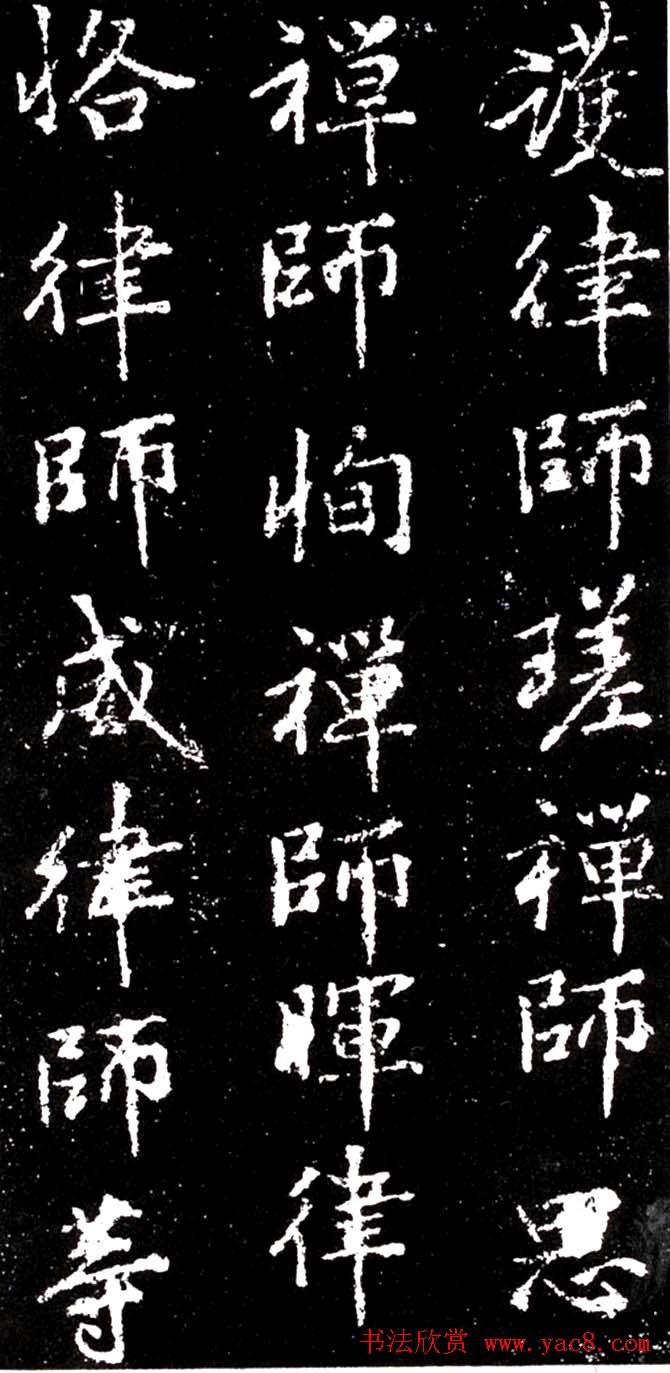 護律師瑳禪師思
禪師恂禪師暉律
恪律師威律師等
书法欣赏 www.yac8.com